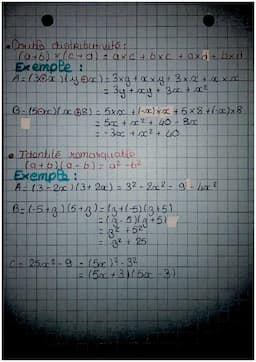 • Double distributivité :
(a+b) × (c+d) = a×c + b×c + a×d + b×d
Exemple :
A = (3+x)(y+x) = 3×y + x×y + 3×x + x×x
= 3y + xy + 3x + x²
B = (5-x)(x+8) = 5×x + (-x)×x + 5×8 + (-x)×8
= 5x + x² + 40 - 8x
= -3x + x² + 40
• Identité remarquable
(a+b)(a-b) = a² - b²
Exemple :
A = (3-2x)(3+2x) = 3² - 2x² = 9 - 4x²
B = (-5+y)(5+y) = (y+(-5)(y+5)
= (y-5)(y+5)
= y² + 5²
= y² + 25
C = 25x² - 9 = (5x)² - 3²
= (5x+3)(5x-3)